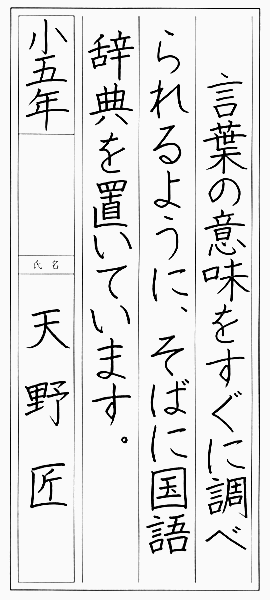 言葉の意味をすぐに調べ
られるように、そばに国語
辞典を置いています。
小五年
氏名
天野匠